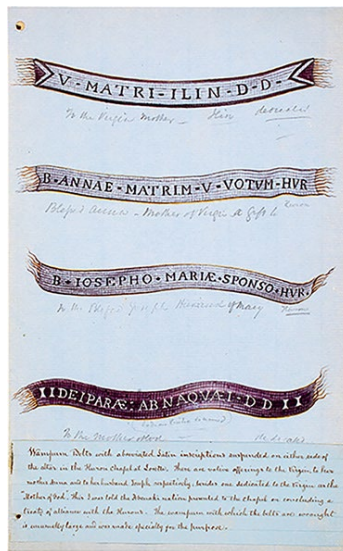 V - MATRI - ILIN - D - D -
To the Virgin Mother - Ilin dedicated
B - ANNAE - MATRIM - V - VOTVM - HVR
Blessed Anna - Mother of Virgin A gift to Huron
B - IOSEPHO - MARIÆ - SPONSO - HVR.
To the Blessed Joseph Husband of Mary Huron
DEIPARÆ - ABNAQVÆI - D - D
To the Mother of God - dedicated
Wampum Belts with abbreviated Latin inscriptions suspended on either side of
the altar in the Huron Chapel at Lorette. These are votive offerings to the Virgin to her
mother Anna and to her husband Joseph respectively, besides one dedicated to the Virgin as the
"Mother of God". This I was told the Abenakis nation presented to the chapel on concluding a
treaty of alliance with the Hurons. The wampum with which the belts are wrought
is unusually large and was made specially for the purpose.